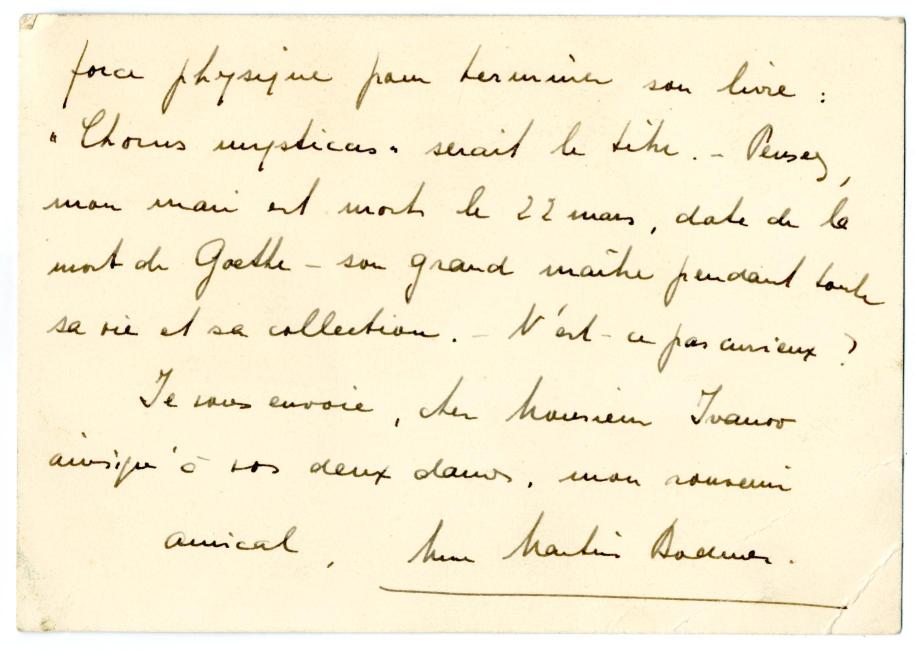 force physique pour terminer son livre :
"Chorus mysticus" serait le titre. – Pensez,
mon mari est mort le 22 mars, date de la
mort de Goethe – son grand maître pendant toute
sa vie et sa collection. – N'est-ce pas curieux ?
Je vous envoie, cher Monsieur Ivanov
ainsiqu'à vos deux dames, mon souvenir
amical, Mme Martin Bodmer.